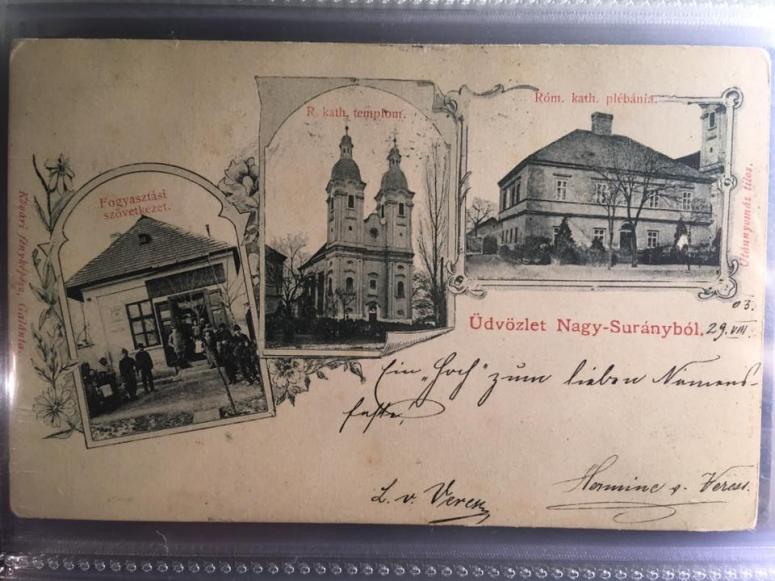 Fogyasztási
szövetkezet.
R. kath. templom.
Róm. kath. plébánia.
Kövári fényképész, Galánta.
Utánnyomás tilos.
Üdvözlet Nagy-Surányból.
03.
29. VIII.
Ein „Hoch" zum lieben Namens-
feste!
L. v. Veress
Hermine v. Veress.